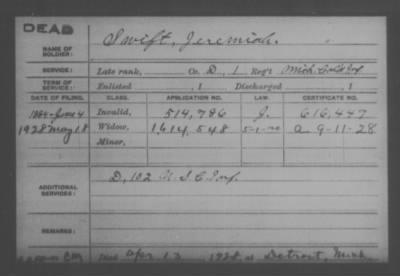 DEAD
NAME OF SOLDIER: Swift, Jeremiah.
SERVICE: Late rank, Co. D, 1 Reg't Mich. Cold Inf
TERM OF SERVICE: Enlisted , 1 Discharged , 1
DATE OF FILING. CLASS. APPLICATION NO. LAW. CERTIFICATE NO.
1884-June 4 Invalid, 514,786 J. 616,447
1928 May 18 Widow, 1,614,548 5-1-20 a 9-11-28
Minor,
ADDITIONAL SERVICES: D, 102 U.S.C. Inf.
REMARKS:
Died Apr. 1928, at Detroit, Mich.